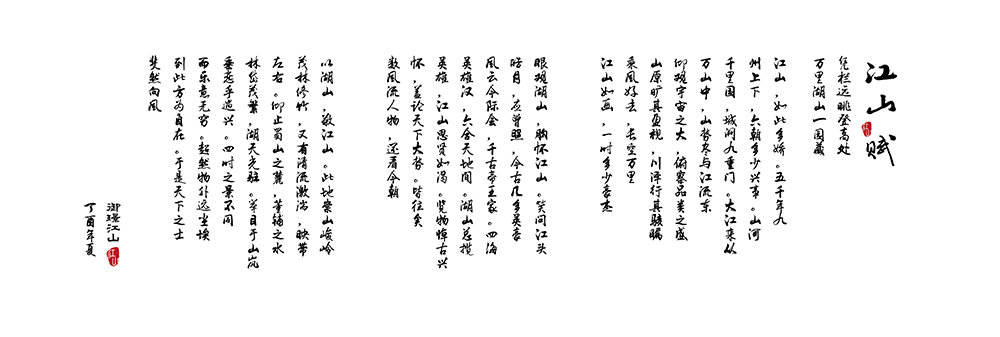 江山赋
凭栏远眺登高处
万里湖山一园藏
江山，如此多娇。五千年九
州上下，六朝多少兴事。山河
千里国，城阙九重门。大江来从
万山中，山势尽与江流东
仰观宇宙之大，俯察品类之盛
山原旷其盈视，川泽纡其骇瞩
乘风好去，长空万里
江山如画，一时多少豪杰
眼观湖山，胸怀江山。笑问江头
皓月，应曾照，今古几多英豪
风云今际会，千古帝王家。四海
英雄汉，六合天地间。湖山总揽
英雄，江山思贤如渴。览物悼古兴
怀，盖论天下大势。皆往矣
数风流人物，还看今朝
以湖山，敬江山。此地崇山峻岭
茂林修竹，又有清流激湍，映带
左右。仰止蜀山之麓，
林岱茂繁，湖天光驻。莘目于山岚
垂恋乎逸兴。四时之景不同
而乐意无穷。超然物外远尘埃
到此方为自在。于是天下之士
斐然向风
御璟江山
丁酉年夏